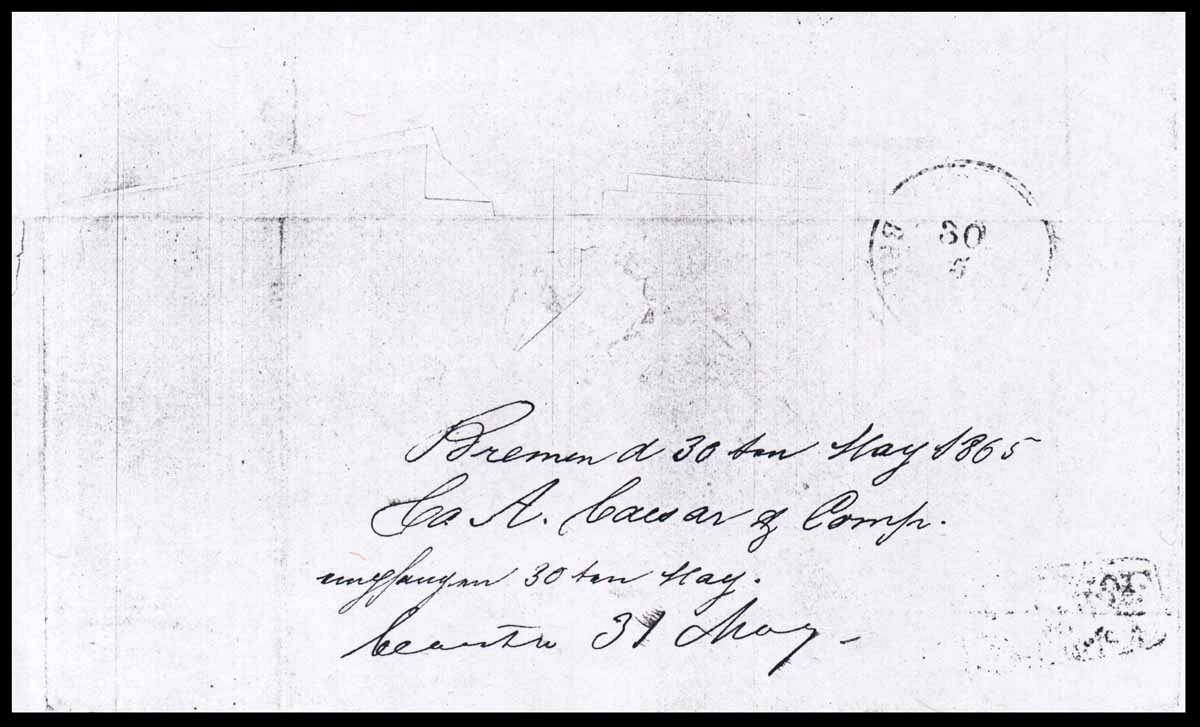 BRE
30
5
Bremen d 30 ten May 1865
Co A. Caesar & Comp.
empfangen 30 ten May.
beantw 31 May